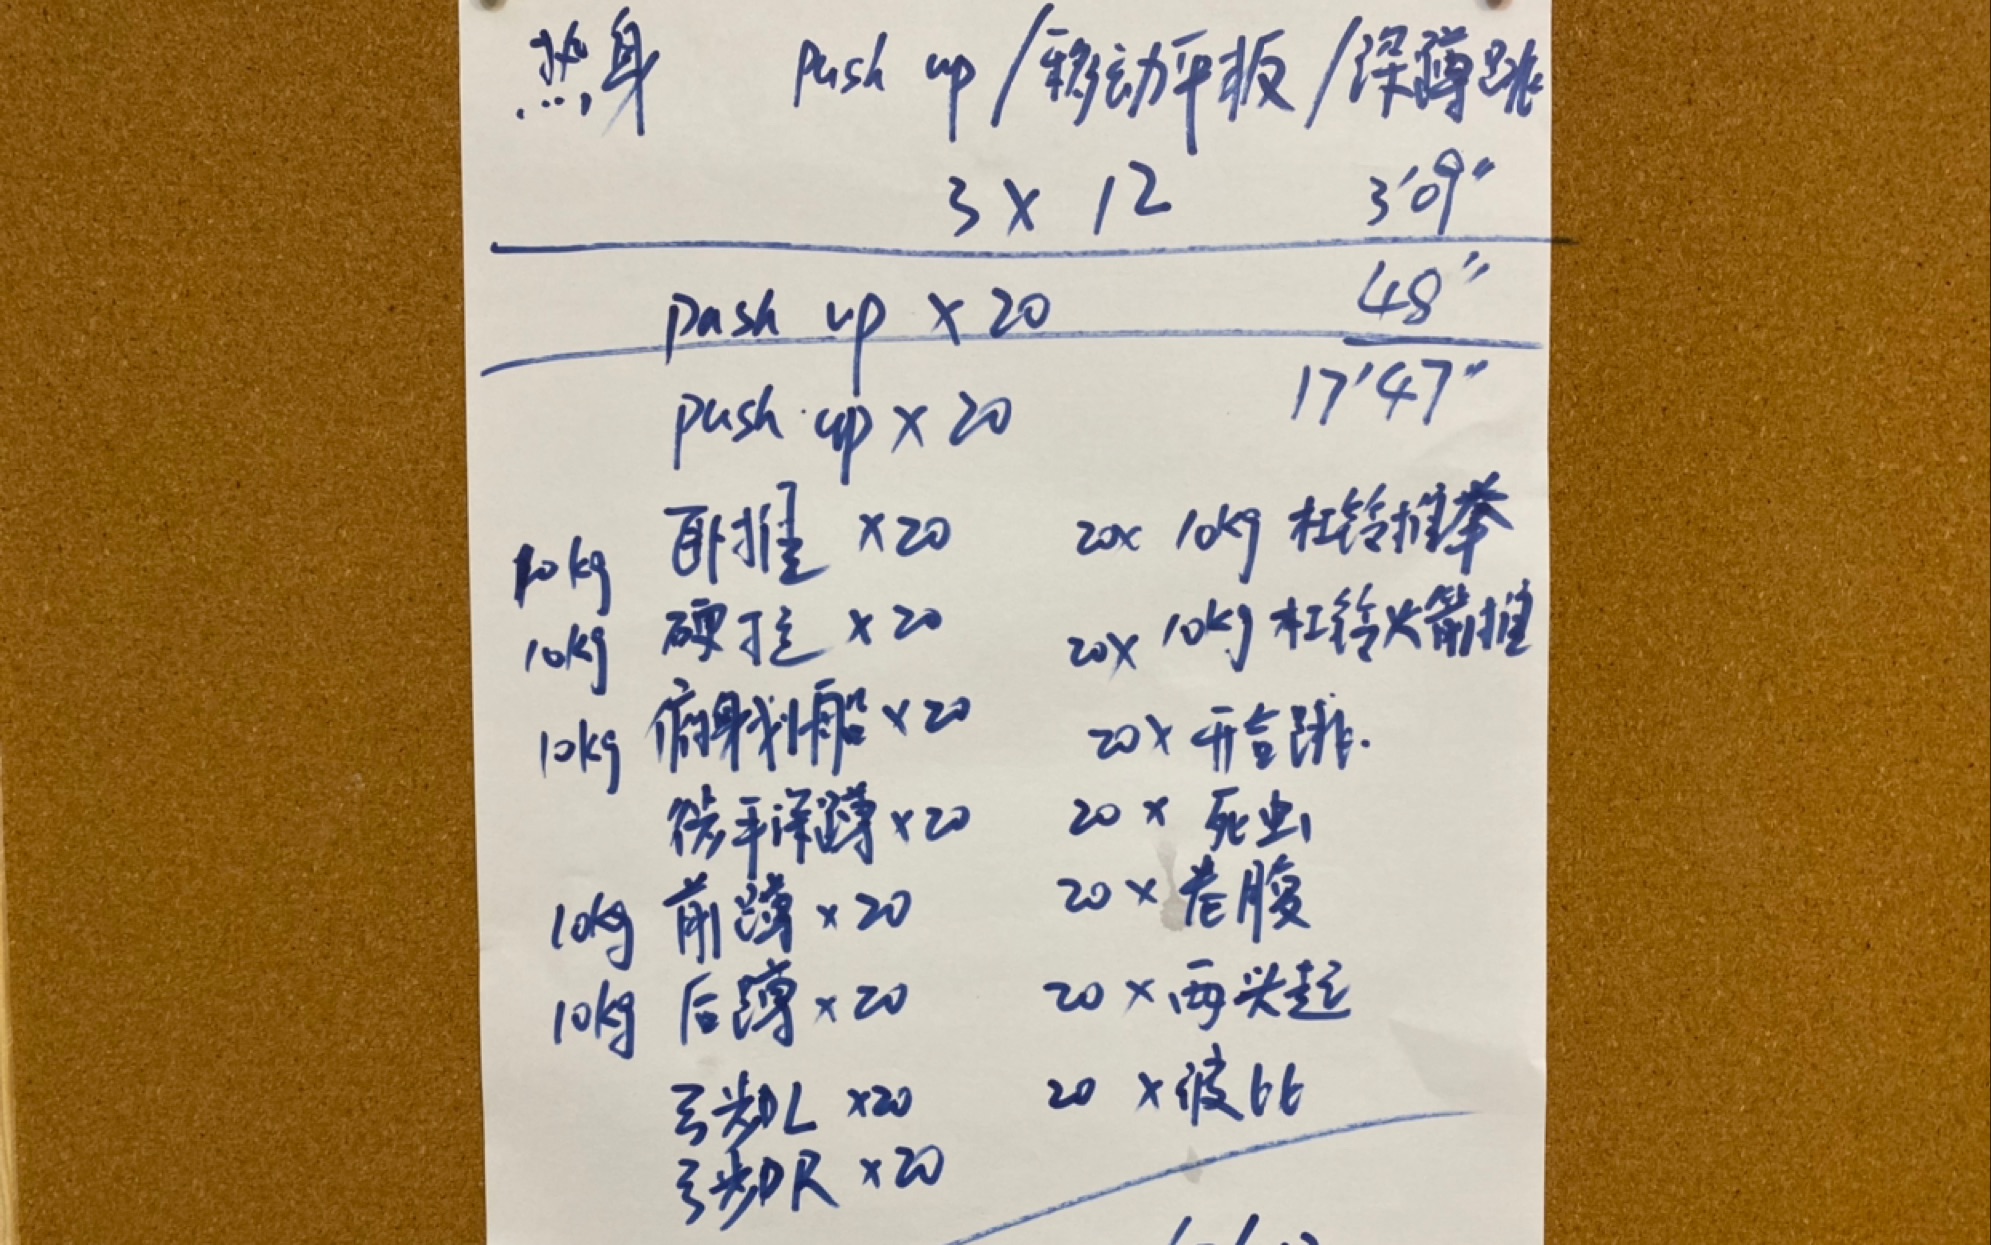 热身 Push up/移动平板/深蹲跳
3 x 12 3'09"
push up x 20 48"
17'47"
push up x 20
10kg 卧推 x 20 20x 10kg 杠铃推举
10kg 硬拉 x 20 20x 10kg 杠铃火箭推
10kg 俯身划船 x 20 20 x 开合跳.
徒手深蹲 x 20 20 x 死虫
10kg 前蹲 x 20 20 x 卷腹
10kg 后蹲 x 20 20 x 两头起
弓步L x 20 20 x 波比
弓步R x 20